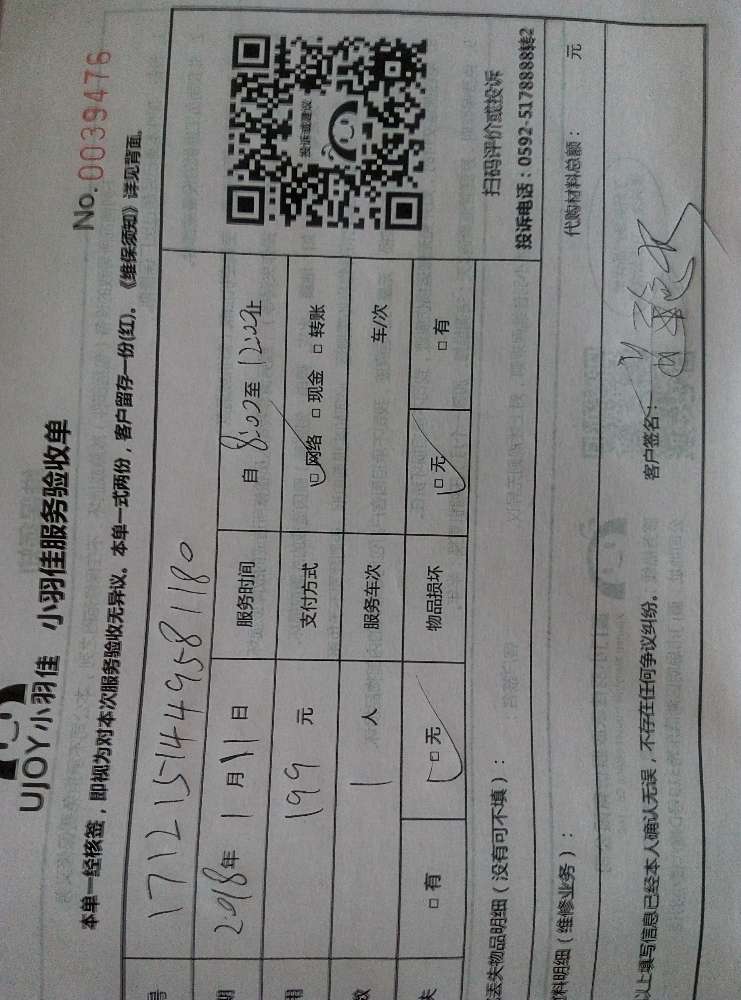 UJOY小羽佳 小羽佳服务验收单
No. 0039476
本单一经核签，即视为对本次服务验收无异议。本单一式两份，客户留存一份(红)。《维保须知》详见背面。
号 1712151449581180
期 2018年 1 月 11 日 服务时间 自 8:00 至 12:00 止
用 199 元 支付方式 □网络 □现金 □转账
数 1 人 服务车次 车/次
失 □有 □无 物品损坏 □无 □有
投诉或建议
扫码评价或投诉
投诉电话：0592-5178888转2
丢失物品明细（没有可不填）：
料明细（维修业务）： 代购材料总额： 元
以上填写信息已经本人确认无误，不存在任何争议纠纷。 客户签名：